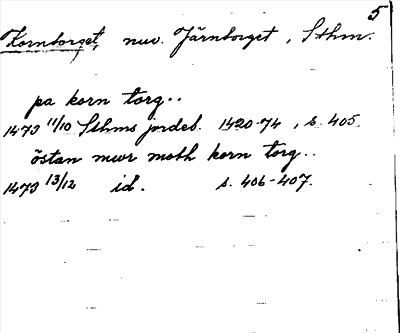 5
Korntorget, nuv. Järntorget, Sthm.
pa korn torg..
1473 11/10 Sthms jordeb. 1420-74, s. 405.
östan mwr moth korn torg..
1473 13/12 id. s. 406-407.